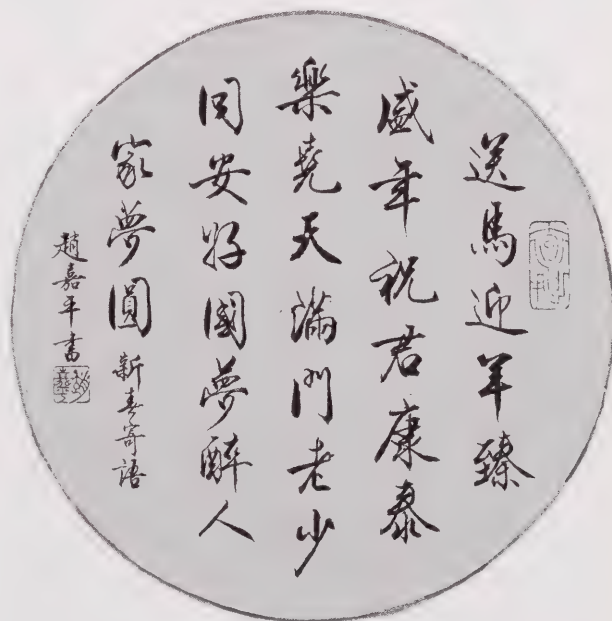 送馬迎羊臻
盛年祝君康泰
樂堯天滿門老少
同安好國夢醉人
家夢圓 新春寄語
趙嘉平書